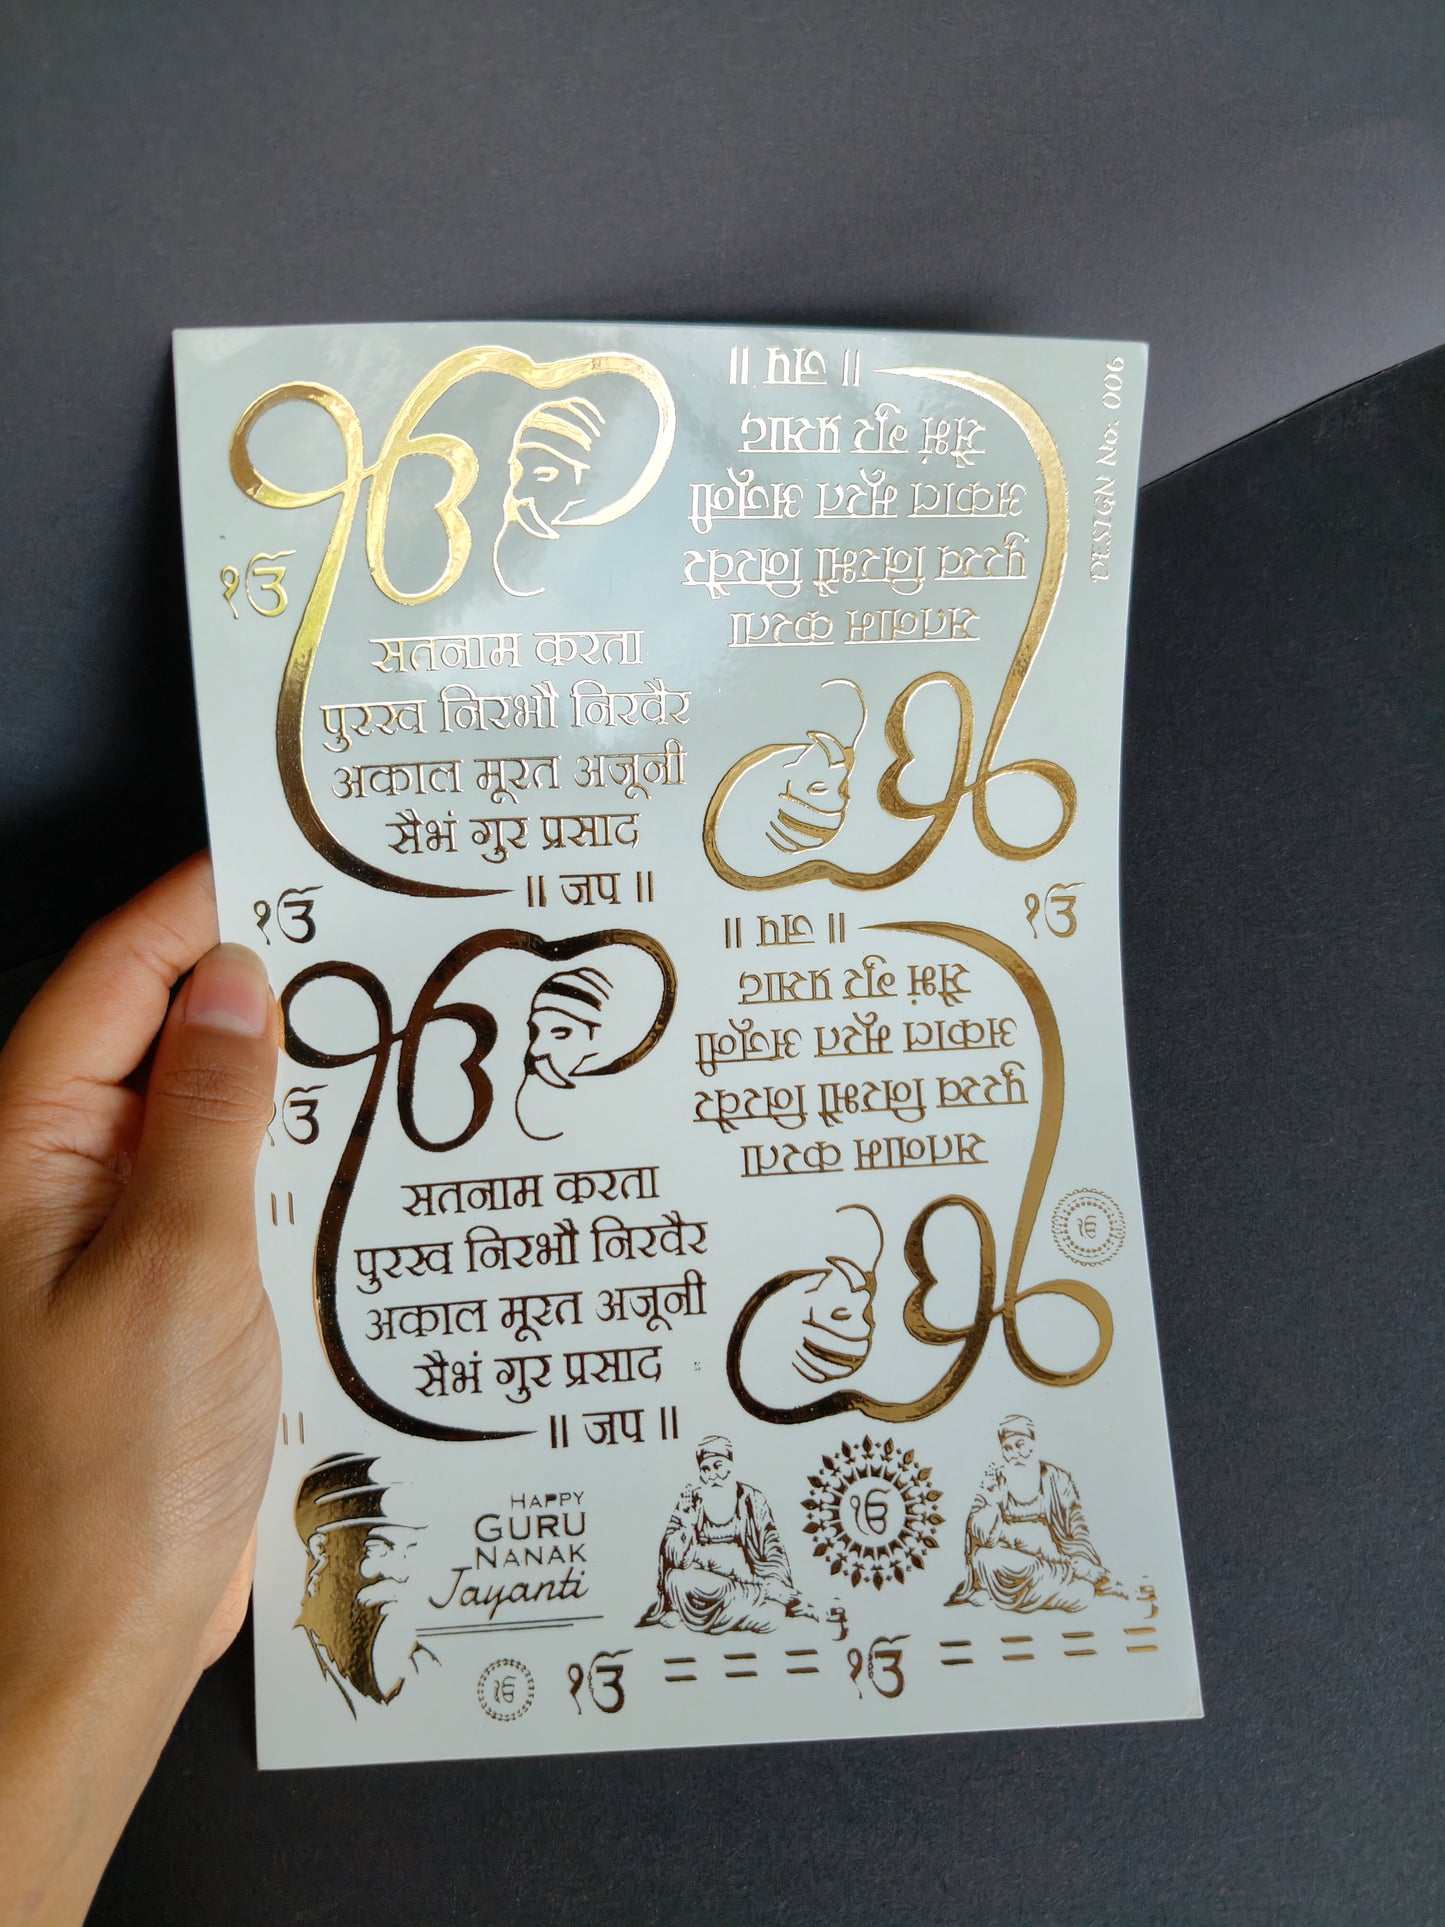 DESIGN No. 006
ੴ
ੴ
सतनाम करता
पुरख निरभौ निरवैर
अकाल मूरत अजूनी
सैभं गुर प्रसाद
॥ जप ॥
ੴ
सतनाम करता
पुरख निरभौ निरवैर
अकाल मूरत अजूनी
सैभं गुर प्रसाद
॥ जप ॥
ੴ
ੴ
ੴ
सतनाम करता
पुरख निरभौ निरवैर
अकाल मूरत अजूनी
सैभं गुर प्रसाद
॥ जप ॥
ੴ
सतनाम करता
पुरख निरभौ निरवैर
अकाल मूरत अजूनी
सैभं गुर प्रसाद
॥ जप ॥
ੴ
ੴ
HAPPY
GURU
NANAK
Jayanti
ੴ
ੴ
ੴ
ੴ